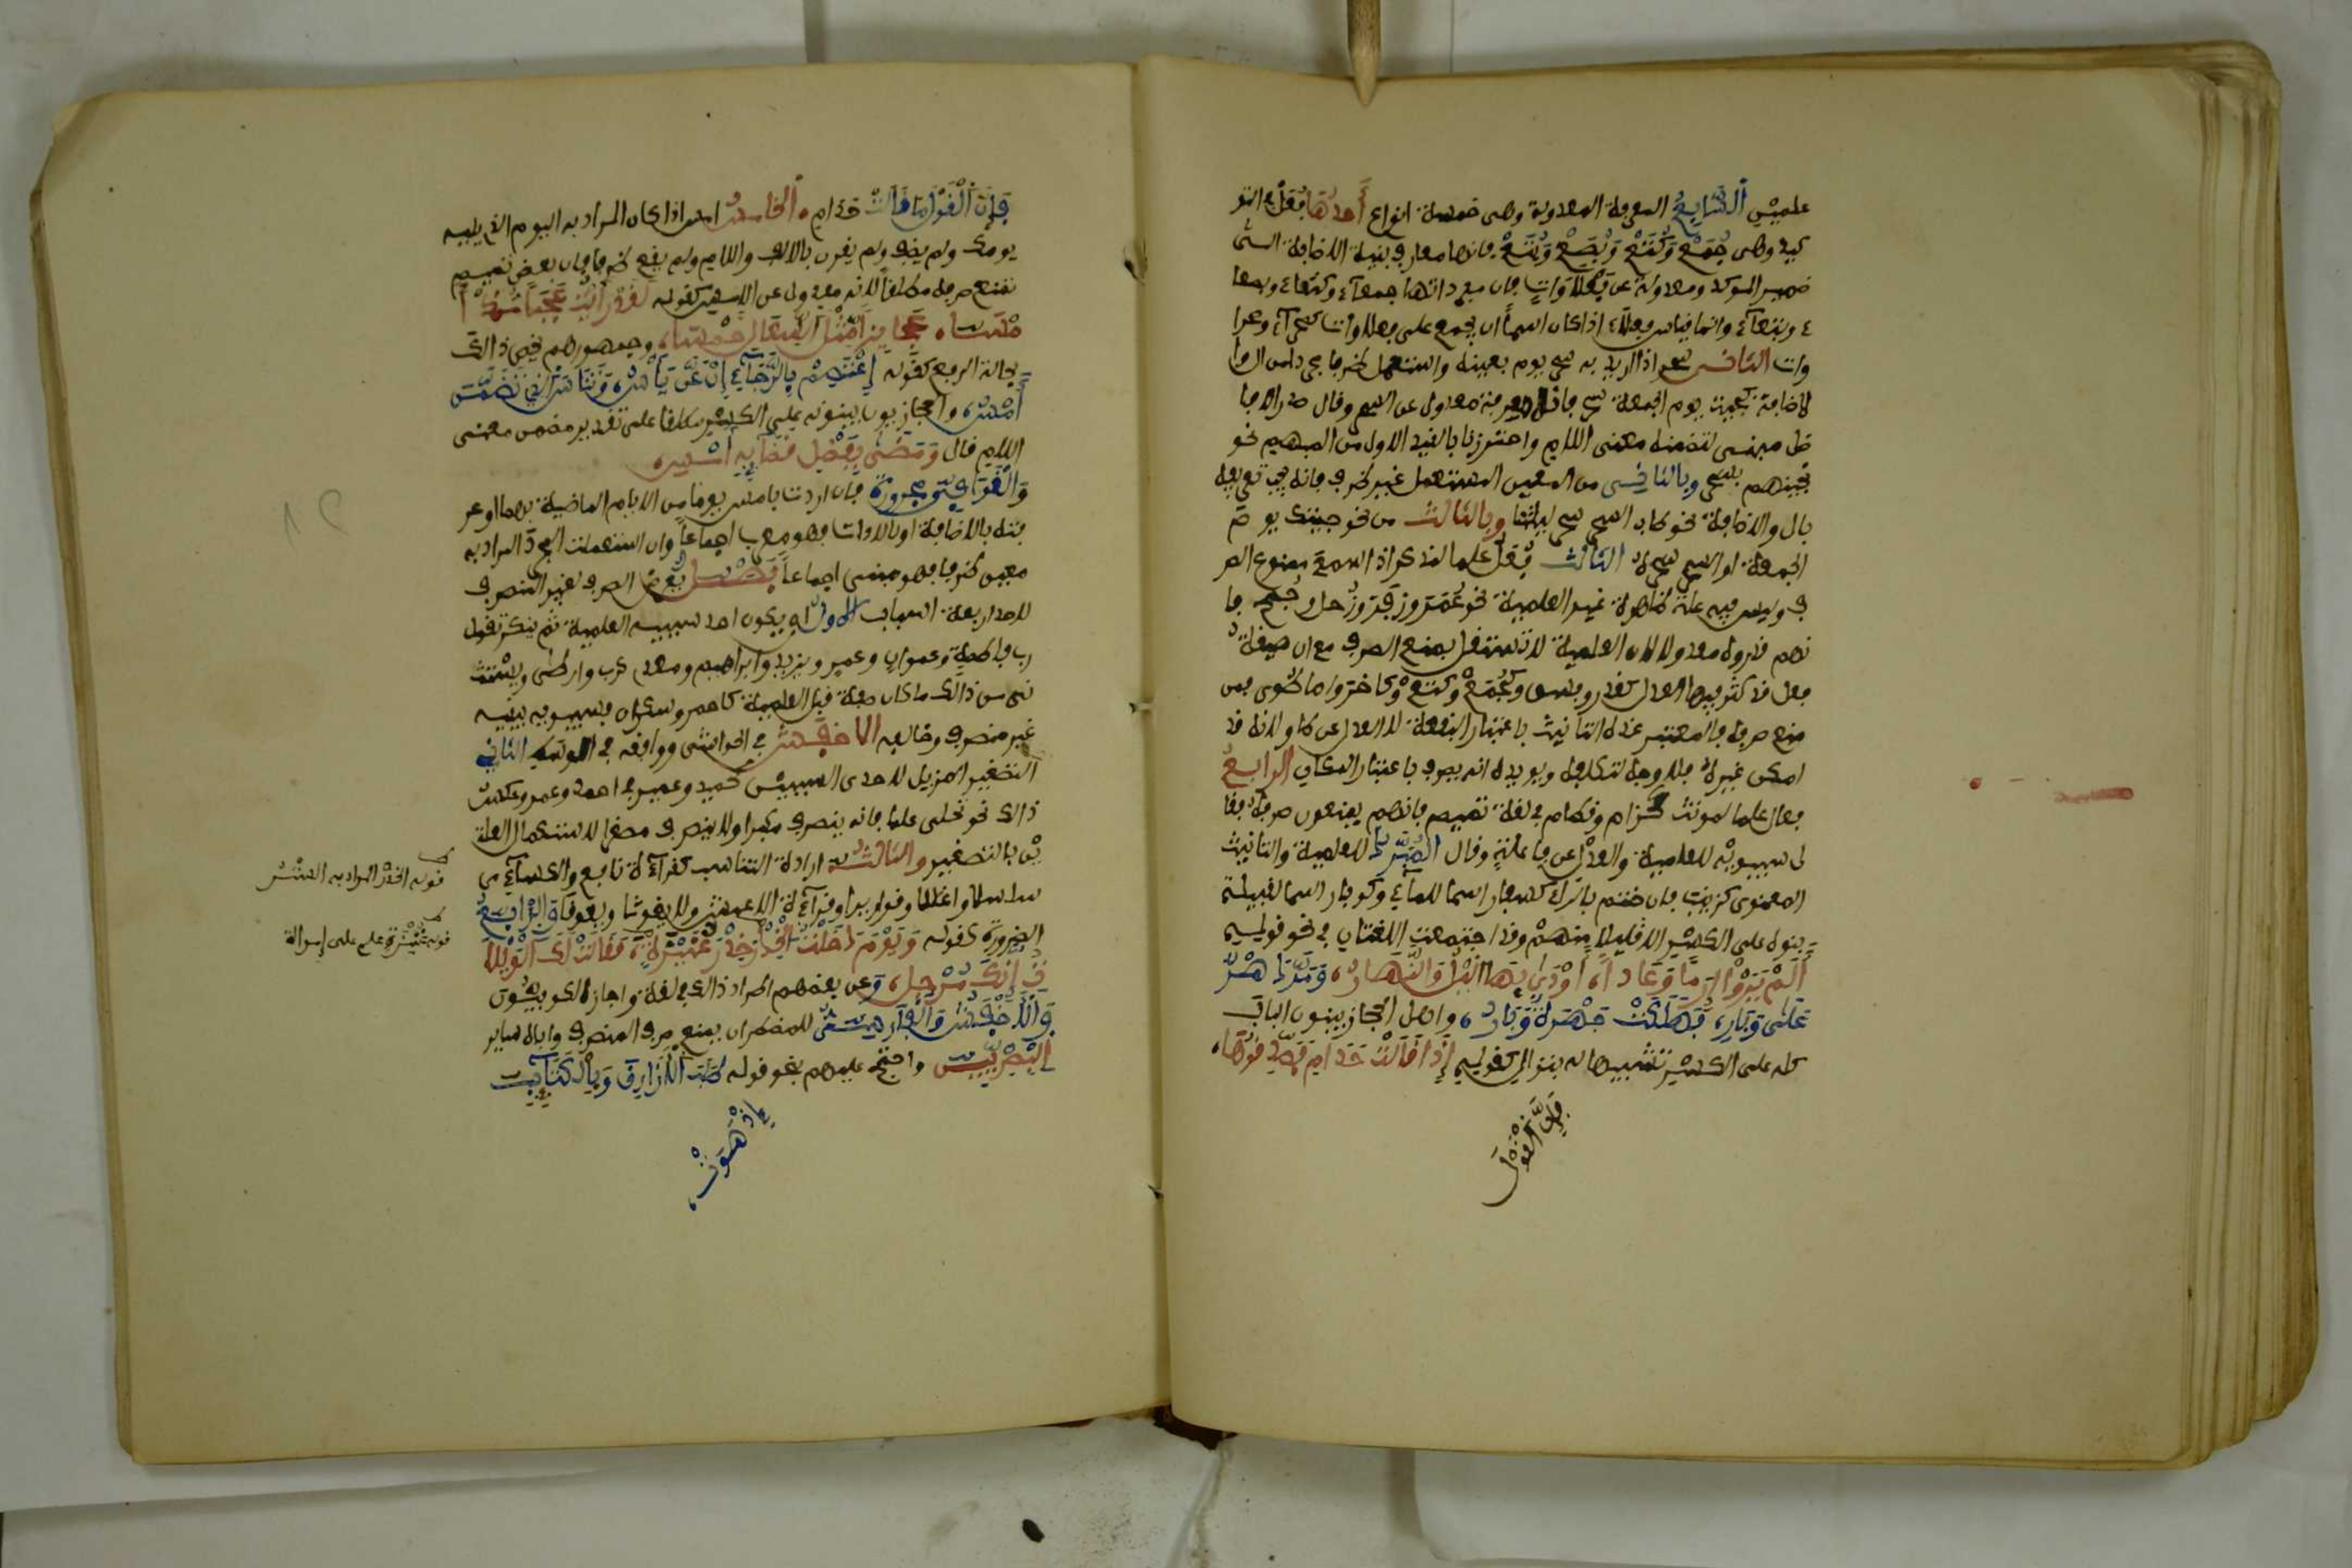 علميين السابع المعرفة المعدولة وهى خمسة انواع أحدها فعل في التو
كيد وهى جمع وكتع وبصع وبتع فانها معارف بنية الاضافة الى
ضمير الموكد ومعدولة عن فعلاوات فان مفرداتها جمعاء وكتعاء وبصعا
ء وبتعاء وانما قياس فعلاء اذا كان اسماً ان يجمع على فعلاوات كصحراء وصحرا
وات الثانى سحر اذا اريد به سحر يوم بعينه واستعمل ظرفا مجردا من ال وا
لاضافة كجئت يوم الجمعة سحر فانه معرفة معدول عن السحر وقال صدر الافا
ضل مبنى لتضمنه معنى اللام واحترزنا بالقيد الاول من المبهم نحو
نجيناهم بسحر وبالثانى من المعين المستعمل غير ظرف فانه يجب تعريفه
بال والاضافة نحو طاب السحر سحر ليلتنا وبالثالث من نحو جئتك يوم
الجمعة او السحر سحره الثالث فعل علما لمذكر اذا سمع ممنوع الصر
ف وليس فيه علة ظاهرة غير العلمية نحو عمر وزفر وزحل وجمح فا
نهم قدروه معدولا لان العلمية لا تستقل بمنع الصرف مع ان صيغة
فعل قد كثر فيها العدل كغدر وفسق وكجمع وكتع وكاخر واما طوى فمن
منع صرفه فالمعتبر عنده التأنيث باعتبار البقعة لا العدل عن طاو لانه قد
امكن غيره فلا وجه لتكلفه ويويده انه يصرف باعتبار المكان الرابع
فعال علما لمونث كحزام وقطام في لغة تميم فانهم يمنعون صرفه فقا
ل سيبويه للعلمية والعدل عن فاعلة وقال المبرد للعلمية والتانيث
المعنوى كزينب فان ختم بالراء كسفار اسما للماء وكوبار اسما لقبيلة
بنوه على الكسر الا قليلا منهم وقد اجتمعت اللغتان في نحو قوله
ألم تروا إرما وعاداً، أودى بها اليل والنهار، ومر دهر
على وبار، فهلكت جهرة وبار، واهل الحجاز يبنون الباب
كله على الكسر تشبيها له بنزال كقوله إذا قالت حذام فصدقوها،
فإن القول
فإن القول ما قالت حذام، الخامس امس اذا كان المراد به اليوم الذي يليه
يومك ولم يضف ولم يقرن بالالف واللام ولم يقع ظرفا فان بعض تميم
تمنع صرفه مطلقا لانه معدول عن الامس كقوله لقد رأيت عجبا مذ أ
مسا، عجائزا مثل السعالى خمسا، وجمهورهم يخص ذالك
بحالة الرفع كقوله إعتصم بالرجاء إن عن يأس، وتناس الذي تضمن
أمس، والحجازيون يبنونه على الكسر مطلقا على تقدير مضمن معنى
اللام قال ومضى بفصل قضائه أمس
والقوافى مجرورة فان اردت بامس يوما من الايام الماضية مبهما او عر
فته بالاضافة او بالادات فهو معرب اجماعاً وان استعملت المجرد المراد به
معين ظرفا فهو مبنى اجماعاً فصل يعرض الصرف لغير المنصرف
لاحد اربعة اسباب الاول ان يكون احد سببيه العلمية ثم ينكر تقول
رب فاطمة وعمران وعمر ويزيد وابراهيم ومعد يكرب وارطى ويستث
نى من ذالك ما كان صفة قبل العلمية كاحمر وسكران فسيبويه يبقيه
غير منصرف وخالفه الاخفش في الحواشى ووافقه في الاوسط الثاني
التصغير المزيل لاحدى السببين كحميد وعمير في احمد وعمر وعكس
ذالك نحو تحلىء علما فانه ينصرف مكبرا ولا ينصرف مصغرا لاستكمال العلة
ين بالتصغير والثالث ارادة التناسب كقراءة نافع والكساءي
سلاسلا واغلالا وقواريرا وقراءة الاعمش ولا يغوثا ويعوقا الرابع
الضرورة كقوله ويوم دخلت الخدر خدر عنيزة، فقالت لك الويلا
ت إنك مرجلي، وعن بعضهم اطراد ذالك في لغة واجاز الكوفيون
والاخفش والفارسى للمضطر ان يمنع صرف المنصرف واباه ساير
البصريين واحتج عليهم بنحو قوله طلب الازارق بالكتائب
إذ هوت،
قوله الخدر المراد به الستر
قوله عنيزة علم على امراة